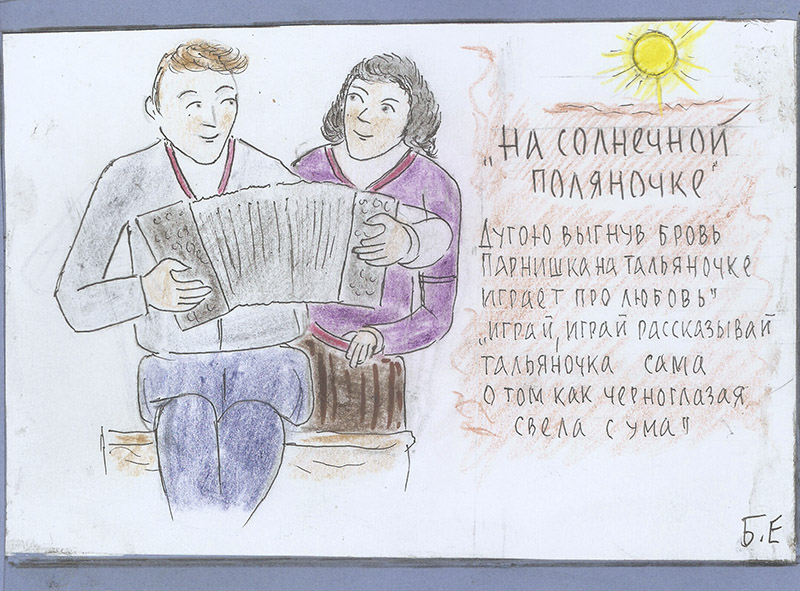 „НА СОЛНЕЧНОЙ
ПОЛЯНОЧКЕ"
ДУГОЮ ВЫГНУВ БРОВЬ
ПАРНИШКА НА ТАЛЬЯНОЧКЕ
ИГРАЕТ ПРО ЛЮБОВЬ"
„ИГРАЙ, ИГРАЙ РАССКАЗЫВАЙ
ТАЛЬЯНОЧКА САМА
О ТОМ КАК ЧЕРНОГЛАЗАЯ
СВЕЛА С УМА"
Б.Е